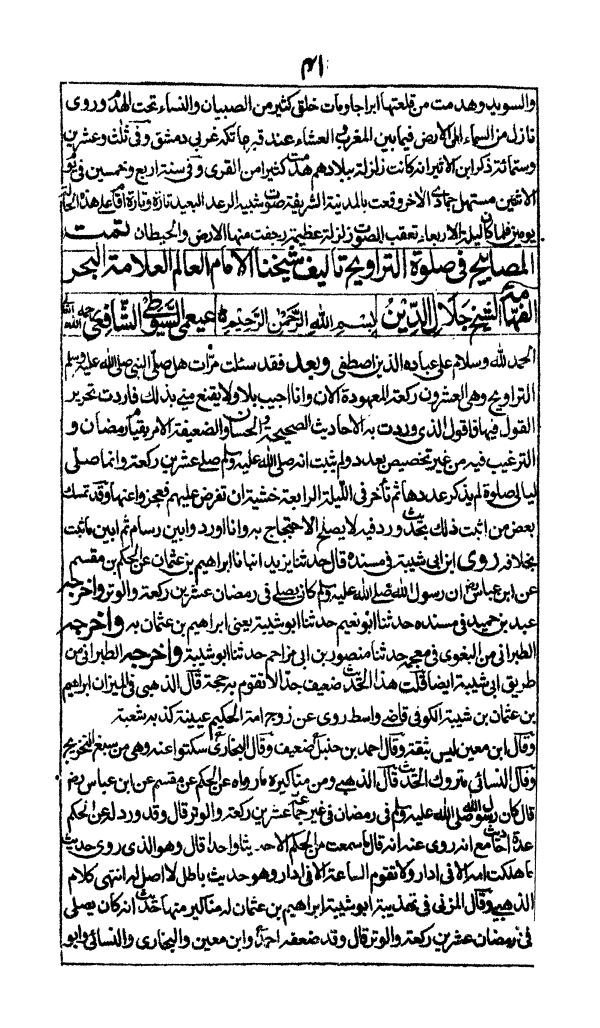 ۴۱
والسويد وهدمت من قلعتها ابراجا ومات خلق كثير من الصبيان والنساء تحت الهدم وروى
نازل من السماء الى الارض فيما بين المغرب والعشاء عند قبر عاتكه غربي دمشق وفى ثلث وعشرين
وستمائة ذكر ابن الاثير انه كانت زلزلة ببلادهم هدمت كثيرا من القرى وفى سنة اربع وخمسين فى يوم
الاثنين مستهل جمادى الاخر وقعت بالمدينة الشريفة صوت شبيه الرعد البعيد تارة وتارة اقام على هذه الحالة
يومين فلما كان ليلة الاربعاء تعقب الصوت زلزلة عظيمة رجفت منها الارض والحيطان تمت
المصابيح فى صلوة التراويح تاليف شيخنا الامام العالم العلامة البحر
الفهامة الشيخ جلال الدين بسم الله الرحمن الرحيم السيوطي الشافعي رحمه الله
الحمد لله وسلام على عباده الذين اصطفى وبعد فقد سئلت مرات هل صلى النبي صلى الله عليه وسلم
التراويح وهى العشرون ركعة المعهودة الان وانا اجيب بلا ولا يقنع مني بذلك فاردت تحرير
القول فيها فاقول الذى وردت به الاحاديث الصحيحة والحسان والضعيفة الامر بقيام رمضان و
الترغيب فيه من غير تخصيص بعدد ولم يثبت انه صلى الله عليه وسلم صلى عشرين ركعة وانما صلى
ليالى صلوة لم يذكر عددها ثم تأخر فى الليلة الرابعة خشية ان تفرض عليهم فعجزوا عنها وقد تمسك
بعض من اثبت ذلك بحديث ورد فيه لا يصلح الاحتجاج به وانا اورده وابين رسام ثم ابين ما ثبت
بخلافه روى ابن ابى شيبة فى مسنده قال حدثنا يزيد انبانا ابراهيم بن عثمان عن الحكم بن مقسم
عن ابن عباس رض ان رسول الله صلى الله عليه وسلم كان يصلى فى رمضان عشرين ركعة والوتر واخرجه
عبد بن حميد فى مسنده حدثنا ابو نعيم حدثنا ابو شيبة يعنى ابراهيم بن عثمان به واخرجه
الطبرانى من البغوى فى معجمه حدثنا منصور بن ابى مزاحم حدثنا ابو شيبة واخرجه الطبرانى من
طريق ابى شيبة ايضا قلت هذا الحديث ضعيف جدا لا تقوم به حجة قال الذهبى فى الميزان ابراهيم
بن عثمان بن شيبة الكوفى قاضى واسط روى عن زوج امة الحكيم عيينة كذبه شعبة
وقال ابن معين ليس بثقة وقال احمد بن حنبل ضعيف وقال البخارى سكتوا عنه وهى من صيغ التجريح
وقال النسائى متروك الحديث قال الذهبى ومن مناكيره ما رواه عن الحكم عن مقسم عن ابن عباس رض
قال كان رسول الله صلى الله عليه وسلم فى رمضان فى غير جماعة عشرين ركعة والوتر قال وقد ورد له عن الحكم
عدة احاديث مع انه روى عنه انه قال ما سمعت من الحكم الا حديثا واحدا قال وهو الذى روى حديث
ما هلكت امة الا فى ادار ولا تقوم الساعة الا فى ادار وهو حديث باطل لا اصل له انتهى كلام
الذهبى وقال المزى فى تهذيبه ابو شيبة ابراهيم بن عثمان له مناكير منها حديث انه كان يصلى
فى رمضان عشرين ركعة والوتر قال وقد ضعفه احمد وابن معين والبخارى والنسائى وابو